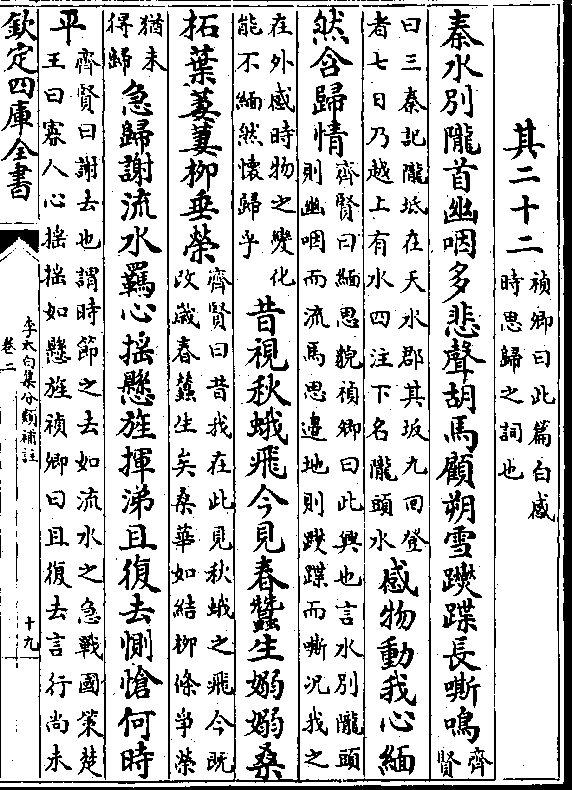 其二十二
禎卿曰此篇白感
時思歸之詞也
秦水別隴首幽咽多悲聲胡馬顧朔雪躞蹀長嘶鳴
齊
賢
曰三秦記隴坻在天水郡其坂九回登
者七日乃越上有水四注下名隴頭水
感物動我心緬
然含歸情
齊賢曰緬思貌禎卿曰此興也言水別隴頭
則幽咽而流馬思邊地則躞蹀而嘶況我之
在外感時物之變化
能不緬然懷歸乎
昔視秋蛾飛今見春蠶生嫋嫋桑
拓葉萋萋柳垂榮
齊賢曰昔我在此見秋蛾之飛今既
改歲春蠶生矣桑華如結柳條爭榮
猶未
得歸
急歸謝流水羈心揺懸旌揮涕且復去惻愴何時
平
齊賢曰謝去也謂時節之去如流水之急戰國策楚
王曰寡人心揺揺如懸旌禎卿曰且復去言行尚未
欽定四庫全書
李太白集分類補註
卷二
十九